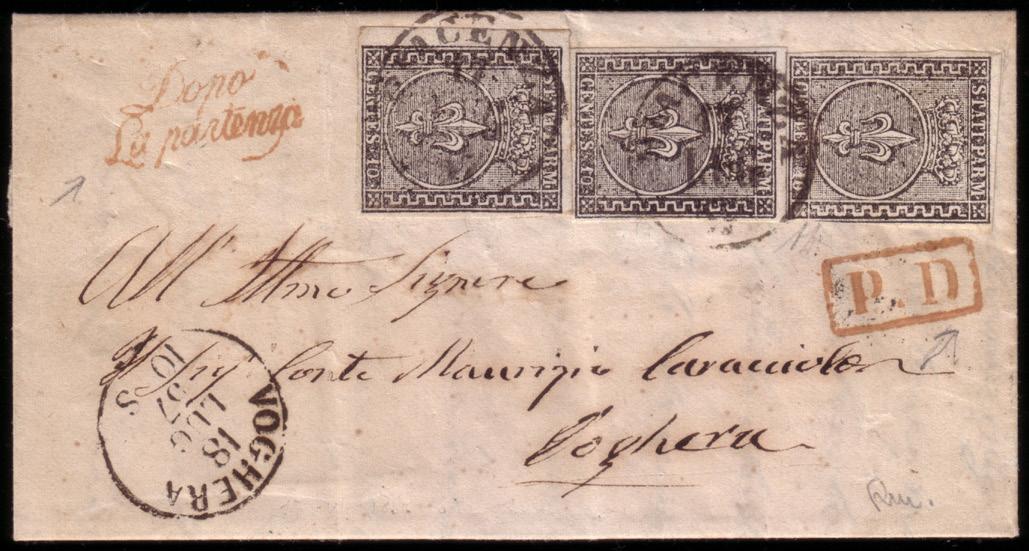 Dopo
La partenza
CENTES. 10
STATI PARM:
CENTES. 10
STATI PARM:
STATI PARM:
P. D
All' Illmo Signore
Il Sigr Conte Maurizio Caracciolo
Voghera
VOGHERA
18
LUG
57
10 S